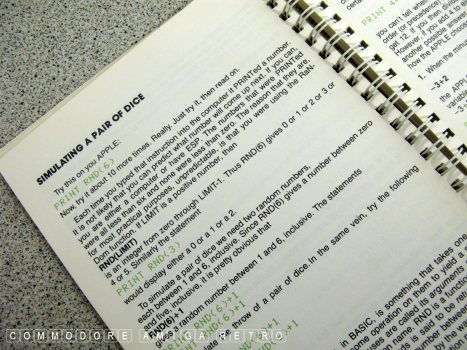 SIMULATING A PAIR OF DICE
Try this on you APPLE:
PRINT RND(6)
Now try it about 10 more times. Really. Just try it, then read on.
Each time you typed that instruction into the computer it PRINTed a number.
It is not likely that you can predict what number will come up next. If you can,
you are either a computer or have ESP. The numbers that were PRINTed
were all less than six and none were less than zero. The reason that they are,
for most practical purposes, unpredictable, is that you were using the RaN-
Dom function. If LIMIT is a positive number, then
RND(LIMIT)
is an integer from zero through LIMIT-1. Thus RND(6) gives 0 or 1 or 2 or 3 or
Similarly the statement
PRINT RND(3)
would display either a 0 or a 1 or a 2.
To simulate a pair of dice we need two random numbers,
each between 1 and 6, inclusive. Since RND(6) gives a number between zero
and five, inclusive, it is pretty obvious that
RND(6)+1
gives a random number between 1 and 6, inclusive. The statements
RND(6)+1
RND(6)+1
late the throw of a pair of dice. In the same vein, try the following
+1
+1
in BASIC, is something that takes one
operation on them to yield a
are called its arguments
name. RND is a function
is said to be
PRINT
you can't tell when
order (or precedence)
get 12. If you then divide
another possible answer
However, if you add 4 to
how the APPLE
1. When the minus
-3+2
the APPLE
variable
-3
COMMODORE AMIGA RETRO